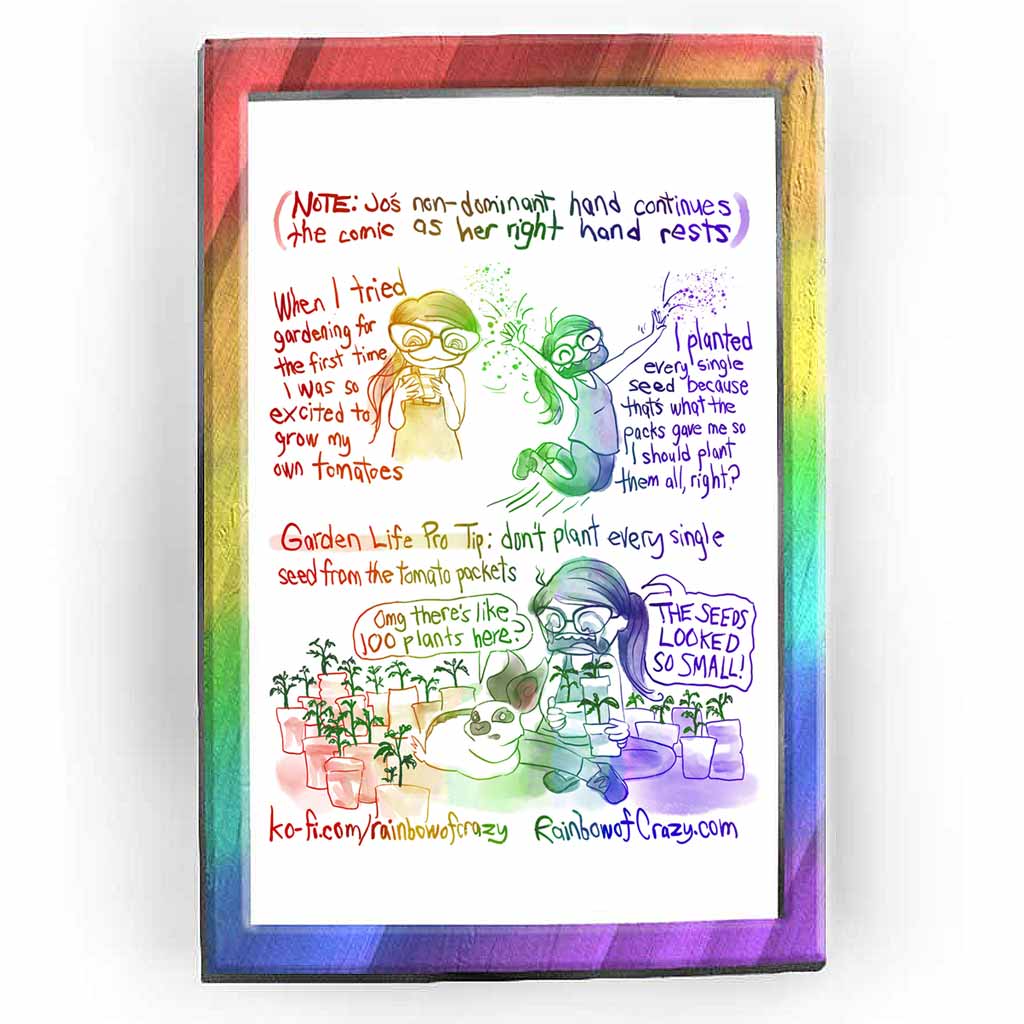 (NOTE: Jo's non-dominant hand continues
the comic as her right hand rests)
When I tried
gardening for
the first time
I was so
excited to
grow my
own tomatoes
I planted
every single
seed because
that's what the
packs gave me so
I should plant
them all, right?
Garden Life Pro Tip: don't plant every single
seed from the tomato packets
Omg there's like
100 plants here?
THE SEEDS
LOOKED
SO SMALL!
ko-fi.com/rainbowofcrazy
RainbowofCrazy.com